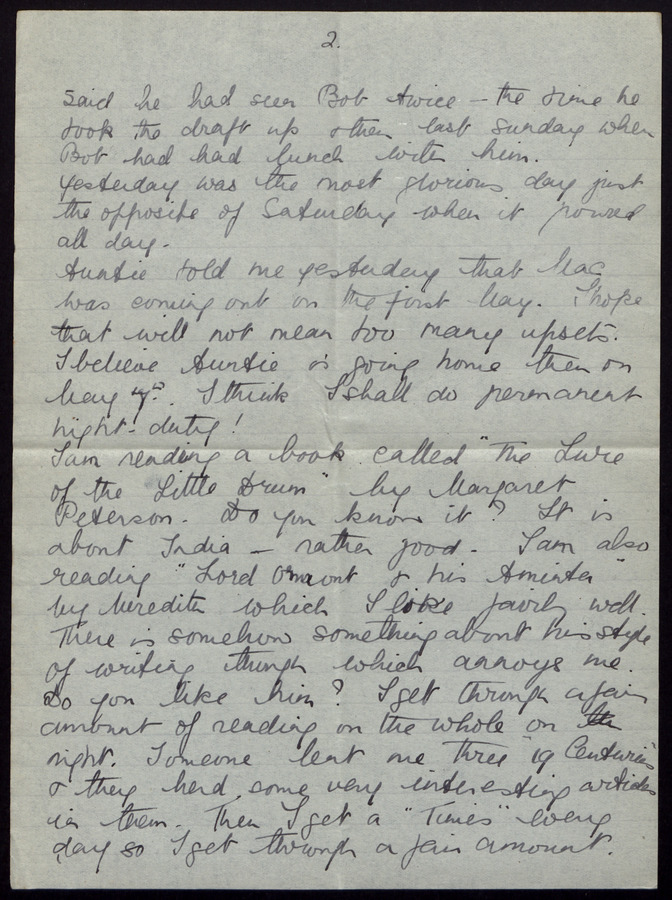 2.
Said he had seen Bob twice – the time he
took the draft up & then last Sunday when
Bob had had lunch with him.
Yesterday was the most glorious day just
the opposite of Saturday when it poured
all day.
Auntie told me yesterday that Mac
was coming out on the first May. I hope
that will not mean too many upsets.
I believe Auntie is going home then on
May 7th. I think I shall do permanent
night-duty!
I am reading a book called "The Lure
of the Little Drum" by Margaret
Peterson. Do you know it? It is
about India – rather good. I am also
reading "Lord Ormont & his Aminta"
by Meredith which I like fairly well.
There is somehow something about his style
of writing though which annoys me.
Do you like him? I get through a fair
amount of reading on the whole on
night. Someone lent me three "19 Centuries"
& they had some very interesting articles
in them. Then I get a "Times" every
day so I get through a fair amount.